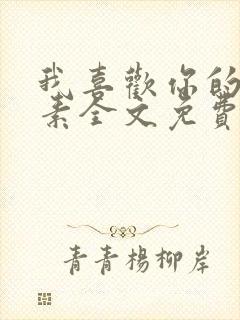 我喜歡你的
素全文免費
青青楊柳岸